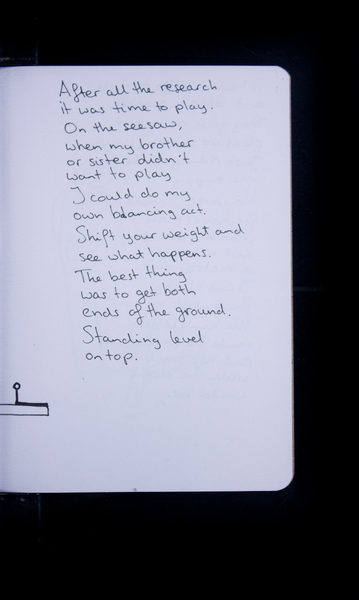 After all the research
it was time to play.
On the seesaw,
when my brother
or sister didn't
want to play
I could do my
own balancing act.
Shift your weight and
see what happens.
The best thing
was to get both
ends of the ground.
Standing level
on top.